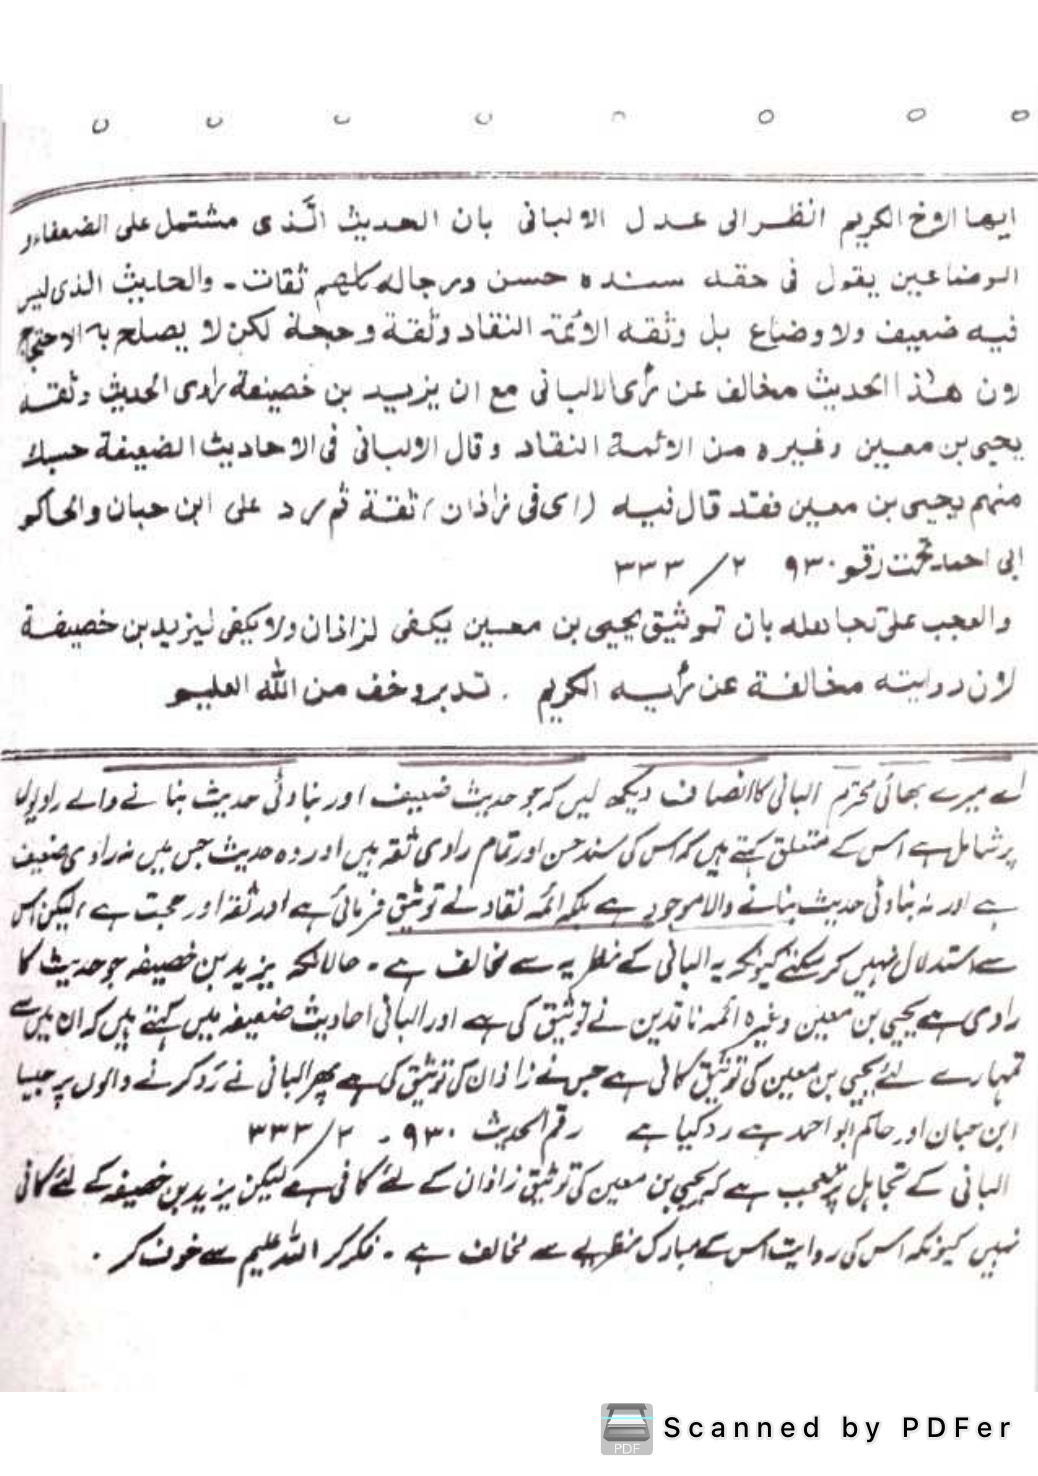 ايها الاخ الكريم انظر الى عدل الالبانى بان الحديث الّذى مشتمل على الضعفاء و
الوضاعين يقول فى حقه سنده حسن ورجاله كلهم ثقات ۔ والحديث الذى ليس
فيه ضعيف ولا وضاع بل وثقه الائمة النقاد وثقة وحجة لكن لا يصلح به الاحتجاج
لان هذا الحديث مخالف عن رأى الالبانى مع ان يزيد بن خصيفة راوى الحديث وثقه
يحيى بن معين وغيره من الائمة النقاد وقال الالبانى فى الاحاديث الضعيفة حسبك
منهم يحيى بن معين فقد قال فيه (اى فى زاذان) ثقة ثم رد على ابن حبان والحاكم
ابى احمد تحت رقم ۹۳۰ ۲/۳۳۳
والعجب على تجاهله بان توثيق يحيى بن معين يكفى لزاذان ولا يكفى ليزيد بن خصيفة
لان روايته مخالفة عن رأيه الكريم . تدبر وخف من الله العليم
اے میرے بھائی محترم البانی کا انصاف دیکھ لیں کہ جو حدیث ضعیف اور بناوٹی حدیث بنانے والے راویوں
پر شامل ہے اس کے متعلق کہتے ہیں کہ اس کی سند حسن اور تمام راوی ثقہ ہیں اور وہ حدیث جس میں نہ راوی ضعیف
ہے اور نہ بناوٹی حدیث بنانے والا موجود ہے بلکہ ائمہ نقاد نے توثیق فرمائی ہے اور ثقہ اور حجت ہے لیکن اس
سے استدلال نہیں کر سکتے کیونکہ یہ البانی کے نظریہ سے مخالف ہے ۔ حالانکہ یزید بن خصیفہ جو حدیث کا
راوی ہے یحیی بن معین وغیرہ ائمہ ناقدین نے توثیق کی ہے اور البانی احادیث ضعیفہ میں کہتے ہیں کہ ان میں سے
تمہارے لئے یحیی بن معین کی توثیق کافی ہے جس نے زاذان کی توثیق کی ہے پھر البانی نے رَد کرنے والوں پر جیسا
ابن حبان اور حاکم ابو احمد ہے رد کیا ہے رقم الحدیث ۹۳۰ ۔ ۲/۳۳۳
البانی کے تجاہل پر تعجب ہے کہ یحیی بن معین کی توثیق زاذان کے لئے کافی ہے لیکن یزید بن خصیفہ کے لئے کافی
نہیں کیونکہ اس کی روایت اس کے مبارک نظریے سے مخالف ہے ۔ فکر کر اللہ علیم سے خوف کر ۔
Scanned by PDFer
PDF